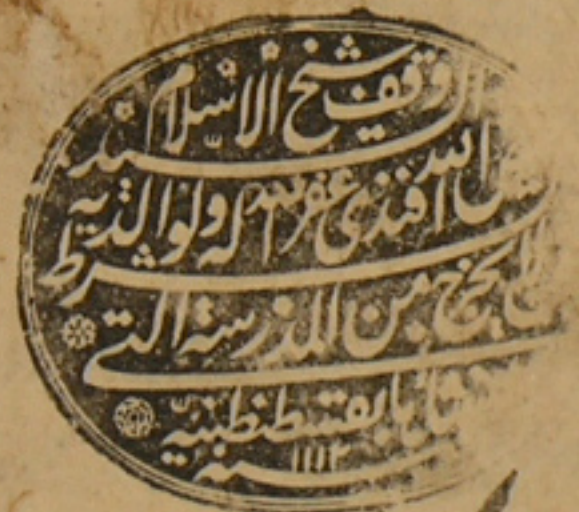 وقف شيخ الاسلام السيد
فيض الله افندى غفر الله له ولوالديه
بشرط
لا يخرج من المدرسة التى
بقسطنطينية
سنة ١١١٢